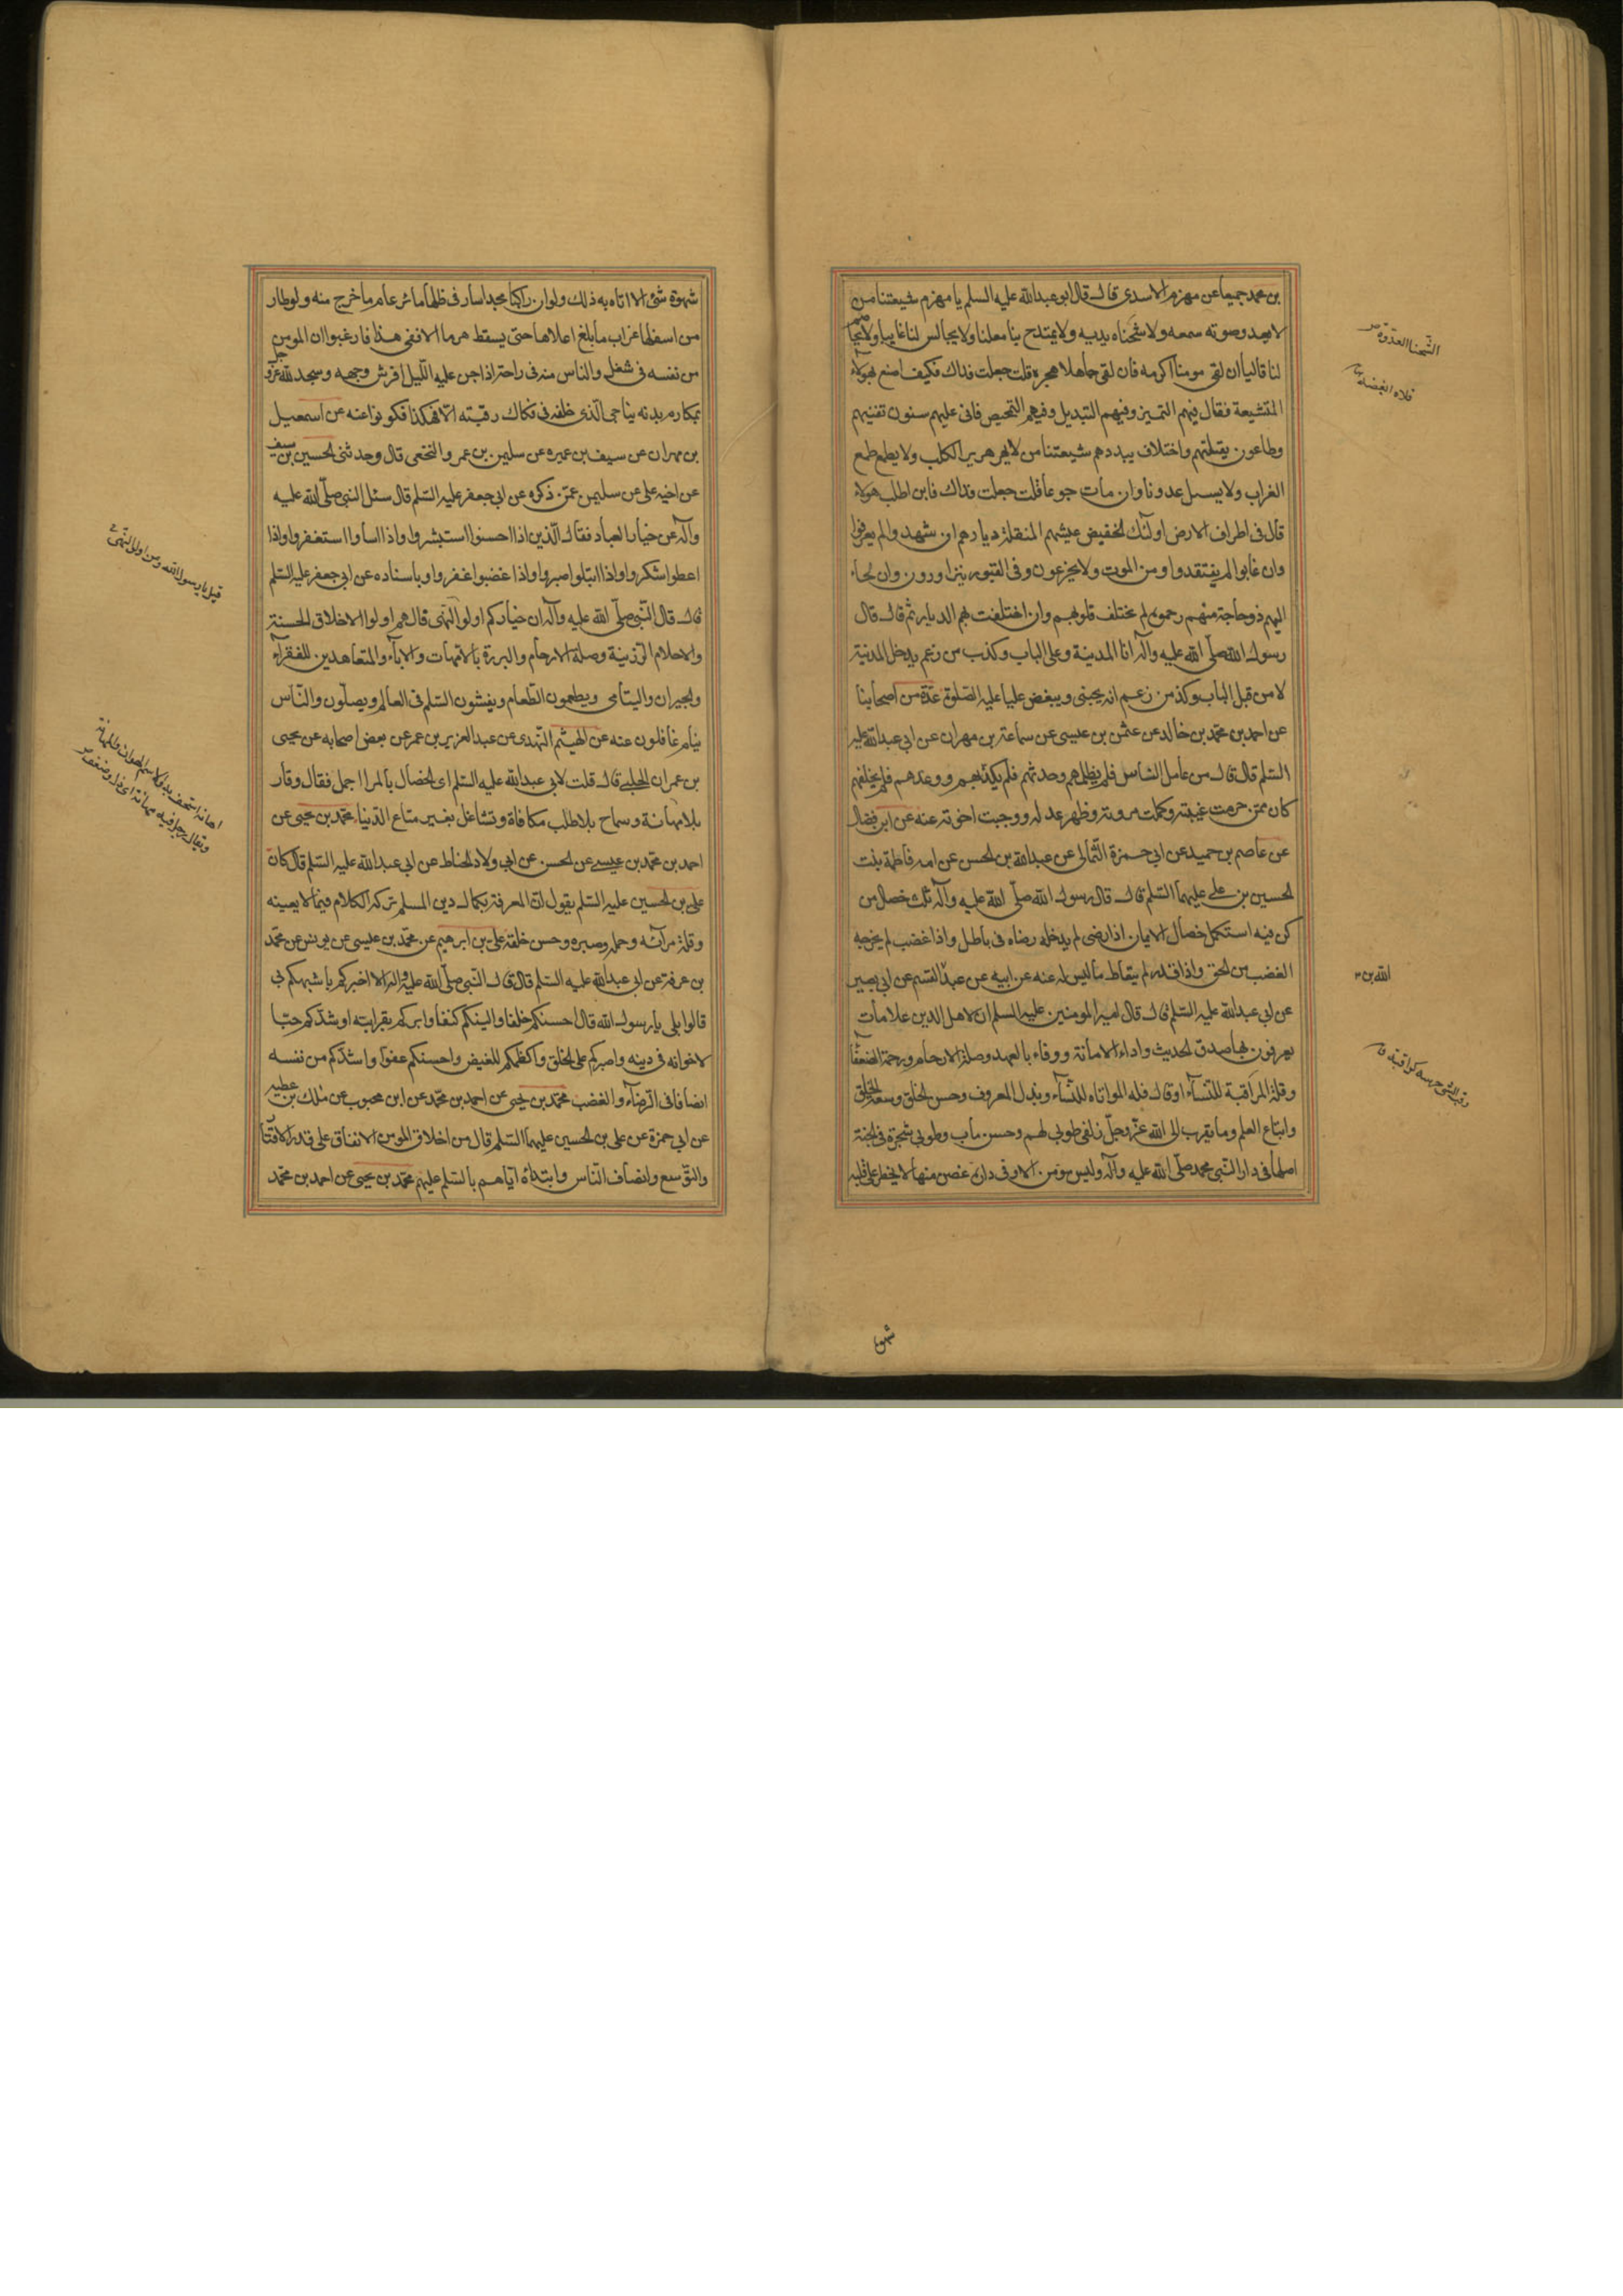 بن محمد جميعا عن مهزم الاسدى قال قال ابو عبد الله عليه السلم يا مهزم شيعتنا من
لا يعدو صوته سمعه ولا شحناه يديه ولا يمتدح بنا معلنا ولا يجالس لنا غايبا ولا يخاصم
لنا قاليا ان لقى مومنا اكرمه فان لقى جاهلا هجره قلت جعلت فداك فكيف اصنع بهولاء
المتشيعة فقال فيهم التمييز وفيهم التبديل وفيهم التمحيص فاتى عليهم سنون تفنيهم
وطاعون يقتلهم واختلاف يبددهم شيعتنا من لا يهر هرير الكلب ولا يطمع طمع
الغراب ولا يسـل عدونا وان مات جوعا قلت جعلت فداك فاين اطلب هولاء
قال فى اطراف الارض اولئك الخفيض عيشهم المنتقلة ديارهم ان شهدوا لم يعرفوا
وان غابوا لم يفتقدوا ومن الموت ولا يجزعون وفى القبور يتزاورون وان لجاء
اليهم ذو حاجة منهم رحموه لم يختلف قلوبهم وان اختلفت بهم الديار ثم قال قال
رسول الله صلّى الله عليه وآله انا المدينة وعلى الباب وكذب من زعم يدخل المدنية
لا من قبل الباب وكذ من زعم انه يحبنى ويبغض عليا عليه الصلوة عدّة من اصحابنا
عن احمد بن محمد بن خالد عن عثمن بن عيسى عن سماعة بن مهران عن ابى عبد الله عليه
السّلم قال قال من عامل الناس فلم يظلمهم وحدثهم فلم يكذبهم ووعدهم فلم يخلفهم
كان ممّن حرمت غيبته وكملت مروته وظهر عدله ووجبت اخوته عنه عن ابن فضال
عن عاصم بن حميد عن ابى حمزة الثّمالى عن عبد الله بن الحسن عن امه فاطمة بنت
الحسين بن على عليهما السّلم قال قال رسول الله صلّى الله عليه وآله ثلث خصال من
كن فيه استكمل خصال الايمان اذا رضى لم يدخله رضاه فى باطل واذا غضب لم يخرجه
الغضب من الحق واذا قدر لم يتعاط ما ليس له عنه عن ابيه عن عبد القسم عن ابى بصير
عن ابى عبد الله عليه السّلم قال قال امير المومنين عليه السلم ان لاهل الدين علامات
يعرفون بها صدق الحديث واداء الامانة ووفاء بالعهد وصلة الارحام ورحمة الضعفآء
وقلة المراقبة للنّساء او قال قله المواتاه للنّساء وبذل المعروف وحسن الخلق وسعة الخلق
واتباع العلم وما يقرب الى الله عزّ وجلّ زلفى طوبى لهم وحسن مآب وطوبى شجرة فى الجنة
اصلها فى دار النّبى محمد صلّى الله عليه وآله وليس مومن الا وفى داره غصن منها لا يخطر على قلبه
الشحنا العدوة
قلاه ابغضه
الله بن
شهو
شهوة شئ الا اتاه به ذلك ولو ان راكبا مجدا سار فى ظلها مائة عام ما خرج منه ولو طار
من اسفلها غراب ما بلغ اعلاها حتى يسقط هرما الا ففى هذا فارغبوا ان المومن
من نفسه فى شغل والناس منه فى راحة اذا جن عليه اللّيل افرش وجهه وسجد لله عزّ وجل
بمكارم بدنه يناجى الّذى خلقه فى فكاك رقبته الا فهكذا فكونوا عنه عن اسمعيل
بن مهران عن سيف بن عميره عن سليمن بن عمر والنخعى قال وحدثنى الحسين بن سيف
عن اخيه على عن سليمن عمّن ذكره عن ابى جعفر عليه السّلم قال سئل النبى صلّى الله عليه
وآله عن خيار العباد فقال الّذين اذا احسنوا استبشروا واذا اساوا استغفروا واذا
اعطوا شكروا واذا ابتلوا صبروا واذا غضبوا غفروا وباسناده عن ابى جعفر عليه السّلم
قال قال النّبى صلّى الله عليه وآله ان خياركم اولو النّهى قال هم اولوا الاخلاق الحسنة
والاحلام الرّزينة وصلة الارحام والبررة بالامّهات والابآء والمتعاهدين للفقرآء
والجيران واليتامى ويطعمون الطّعام ويفشون السّلم فى العالم ويصلّون والنّاس
نيام غافلون عنه عن الهيثم النّهدى عن عبد العزيز بن عمر عن بعض اصحابه عن يحيى
بن عمران الحلبى قال قلت لابى عبد الله عليه السّلم اى الخصال بالمرا اجمل فقال وقار
بلا مهانة وسماح بلا طلب مكافاة وتشاغل بغير متاع الدّنيا محمّد بن يحيى عن
احمد بن محمّد بن عيسى عن الحسن عن ابى ولاد الحناط عن ابى عبد الله عليه السّلم قال كان
على بن الحسين عليه السّلم يقول انّ المعرفة بكمال دين المسلم تركه الكلام فيما لا يعينه
وقلة مرائه وحلمه وصبره وحسن خلقه على بن ابرهيم عن محمّد بن عيسى عن يونس عن محمّد
بن عرفة عن ابى عبد الله عليه السّلم قال قال النّبى صلّى الله عليه وآله الا اخبركم باشبهكم بى
قالوا بلى يا رسول الله قال احسنكم خلقا والينكم كنفا وابركم بقرابته او شدّكم حبّا
لاخوانه فى دينه واصبركم على الخلق واكظمكم للغيض واحسنكم عفوا واشدّكم من نفسه
انصافا فى الرّضاء والغضب محمّد بن يحيى عن احمد بن محمّد عن ابن محبوب عن ملك بن عطيه
عن ابى حمزة عن على بن الحسين عليهما السّلم قال من اخلاق المومن الانفاق على قدر الاقتار
والتوّسع وانصاف النّاس وابتدائه ايّاهم بالسّلم عليهم محمّد بن يحيى عن احمد بن محمّد
قيل يا رسول الله ومن اولو النّهى